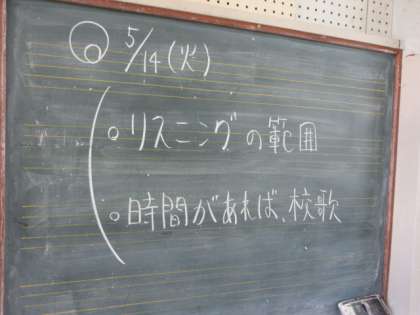 5/14(火)
リスニングの範囲
時間があれば、校歌